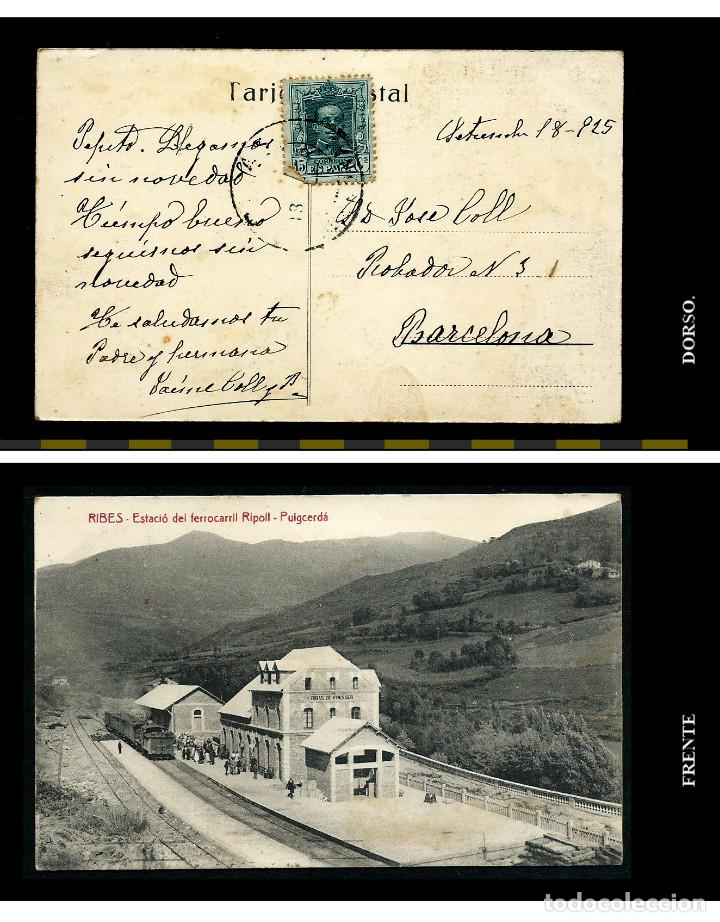 Tarjeta Postal
CORREOS
ESPAÑA
13
Setiembre 18-925
Pepito. Llegamos
sin novedad
Tiempo bueno
seguimos sin
novedad
Te saludamos tu
Padre y hermana
Jaime Coll y B.
Sr D Jose Coll
Robador N 3
Barcelona
DORSO.
RIBES - Estació del ferrocarril Ripoll - Puigcerdá
RIBAS DE FRESSER
FRENTE
todocoleccion